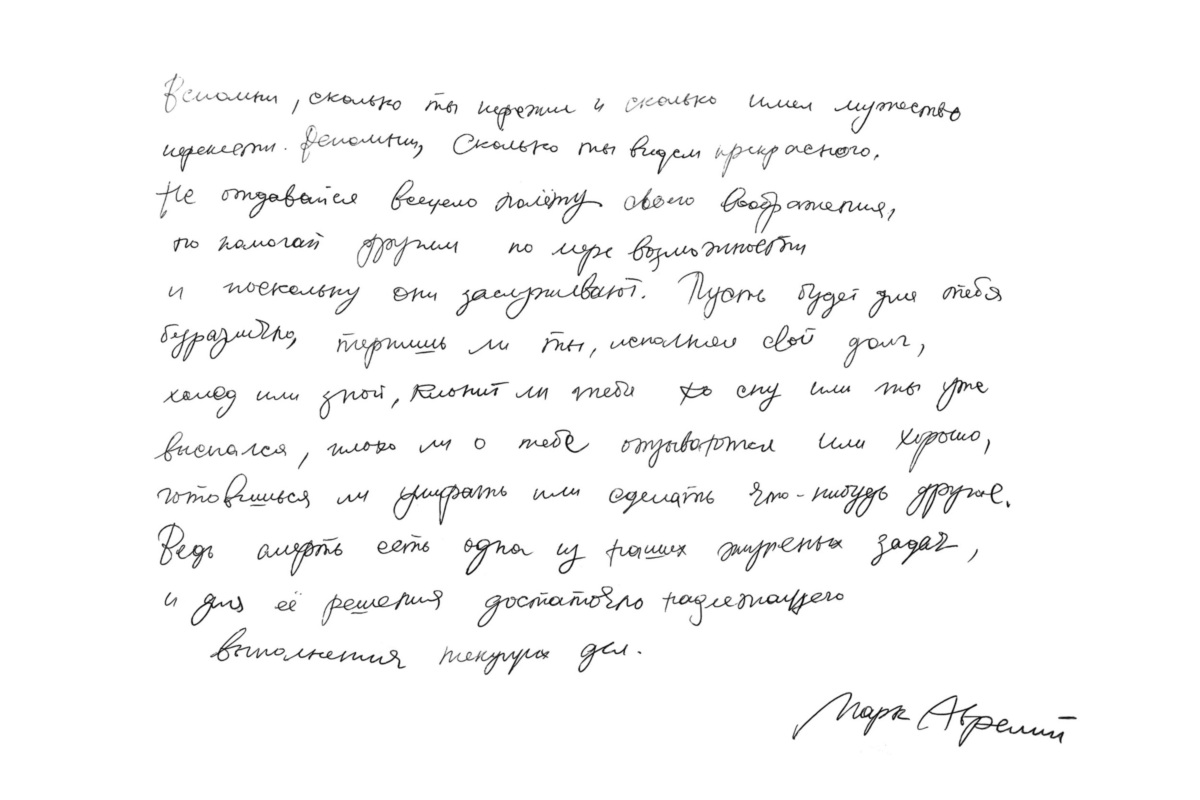 Вспомни, сколько ты пережил и сколько имел мужество
перенести. Вспомни, Сколько ты видел прекрасного.
Не отдавайся всецело полёту своего воображения,
но помогай другим по мере возможности
и поскольку они заслуживают. Пусть будет для тебя
безразлично, терпишь ли ты, исполняя свой долг,
холод или зной, клонит ли тебя ко сну или ты уже
выспался, плохо ли о тебе отзываются или хорошо,
готовишься ли умирать или сделать что-нибудь другое.
Ведь смерть есть одна из наших жизненых задач,
и для её решения достаточно надлежащего
выполнения текущих дел.
Марк Аврелий